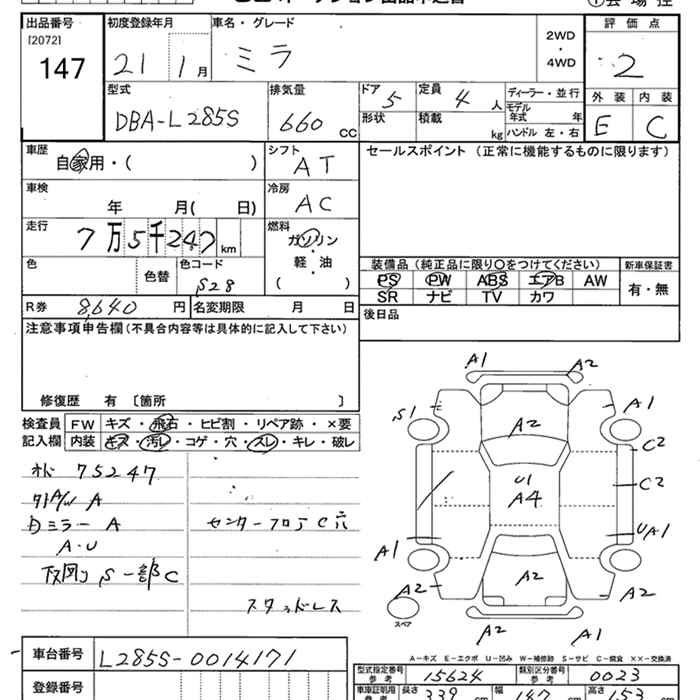 出品番号
[2072]
147
初度登録年月
21 1月
車名・グレード
ミラ
2WD
・
4WD
評価点
2
外装 内装
E C
型式
DBA-L285S
排気量
660 CC
ドア 5
定員 4 人
形状
積載 kg
ディーラー・並行
モデル年式 年
ハンドル 左・右
車歴
自家用・( )
シフト
AT
セールスポイント (正常に機能するものに限ります)
車検
年 月( 日)
冷房
AC
走行
7万5千247km
燃料
ガソリン
・
軽・油
( )
色 色替
色コード
S28
装備品 (純正品に限り○をつけてください)
新車保証書
PS PW ABS エアB AW
SR ナビ TV カワ
有・無
R券 8,640 円
名変期限 月 日
後日品
注意事項申告欄(不具合内容等は具体的に記入して下さい)
修復歴 有 〔箇所 〕
検査員
記入欄
FW キズ・飛石・ヒビ割・リペア跡・×要
内装 キズ・汚レ・コゲ・穴・スレ・キレ・破レ
75247
A
内ミラー A
A・U
下回り S 一部C
センターフロア C穴
スタッドレス
A1 A2
S1 A2 A1
C2
U1
A4
C2
UA1
A1
A2 A2 A2
スペア
A2 A1
A-キズ E-エクボ U-凹み W-補修跡 S-サビ C-腐食 XX-交換済
車台番号 L285S-0014171
登録番号
型式指定番号
参考
15624
類別区分番号
参考
0023
車庫証明用
参考
長さ 339 cm
幅 147 cm
高さ 153 cm